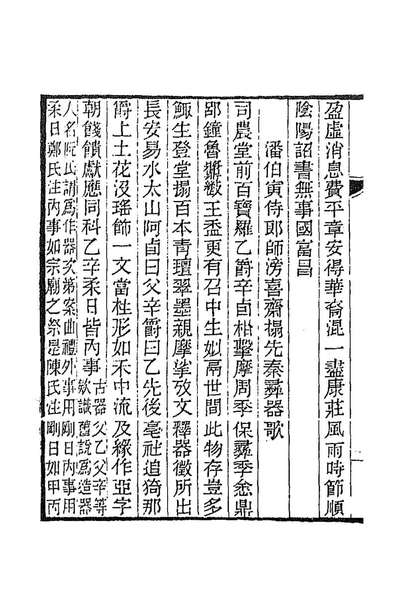 盈虛消息費平章安得華裔混一盡康莊風雨時節順
陰陽詔書無事國富昌
潘伯寅侍郎師滂喜齋搨先秦彝器歌
司農堂前百寶羅乙爵辛卣相擊摩周季保彝季悆鼎
郘鐘魯 王盉更有召中生妣鬲世間此物存豈多
鯫生登堂搨百本青瓊翠墨親摩挲攷文釋器徵所出
長安易水太山阿卣曰父辛爵曰乙先後亳社追猗那
爵上土花沒瑤飾一文當柱形如禾中流及緣作亞字
朝餞饋獻應同科乙辛柔日皆內事古器父乙父辛等
款識舊說爲造器
人名阮氏謂爲作器次第案曲禮外事用剛日內事用
柔日鄭氏注內事如宗廟之祭是陳氏注剛日如甲丙